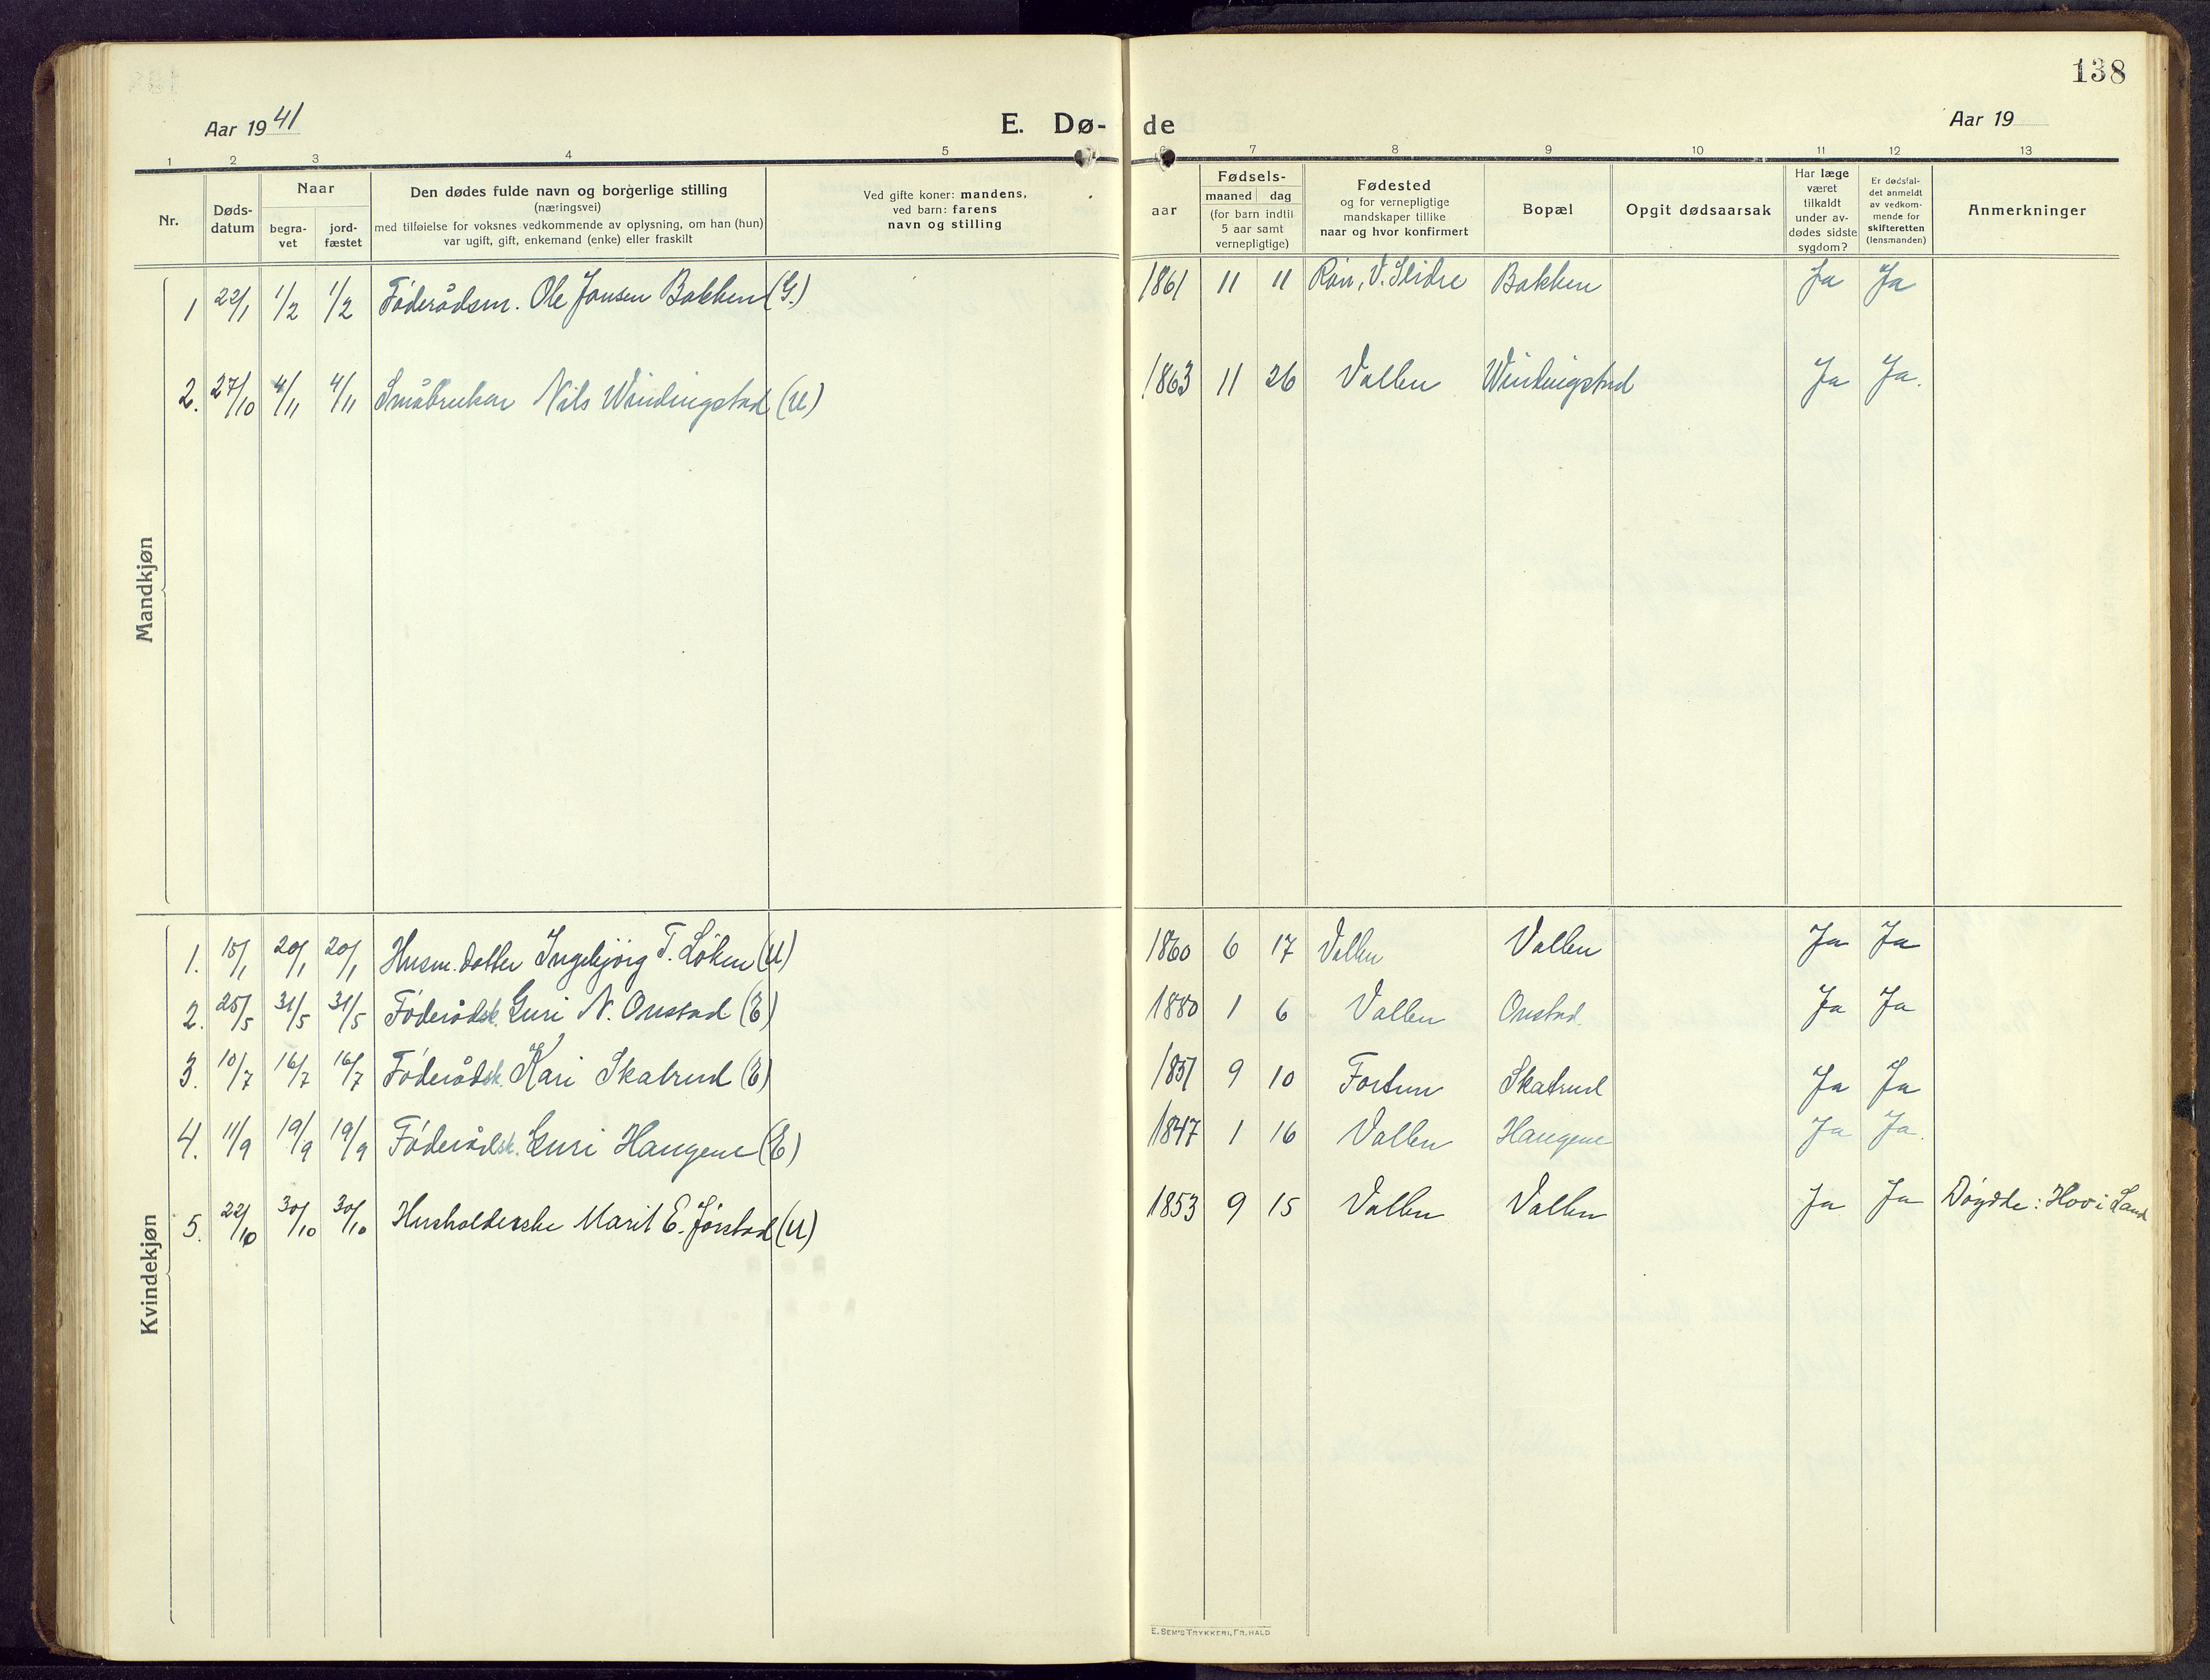 138
Aar 1941
E. Dø- de
Aar 19
1 2 3 4 5 6 7 8 9 10 11 12 13
Nr.
Døds-
datum
Naar
begra-
vet
jord-
fæstet
Den dødes fulde navn og borgerlige stilling
(næringsvei)
med tilføielse for voksnes vedkommende av oplysning, om han (hun)
var ugift, gift, enkemand (enke) eller fraskilt
Ved gifte koner: mandens,
ved barn: farens
navn og stilling
aar
Fødsels-
maaned dag
(for barn indtil
5 aar samt
vernepligtige)
Fødested
og for vernepligtige
mandskaper tillike
naar og hvor konfirmert
Bopæl
Opgit dødsaarsak
Har læge
været
tilkaldt
under av-
dødes sidste
sygdom?
Er dødsfal-
det anmeldt
av vedkom-
mende for
skifteretten
(lensmanden)
Anmerkninger
Mandkjøn
1 22/1 1/2 1/2 Føderådsm. Ole Jonsen Bakken (G.) 1861 11 11 V. Slidre Bakken Ja Ja
2. 27/10 4/11 4/11 Småbruker Nils Windingstad (U) 1863 11 26 Vallen Windingstad Ja Ja.
Kvindekjøn
1. 15/1 20/1 20/1 Husm. datter Ingebjørg T. Løken (U) 1860 6 17 Vallen Vallen Ja Ja
2. 25/5 31/5 31/5 Føderådsk. Guri N. Onstad (E) 1880 1 6 Vallen Onstad. Ja Ja
3. 10/7 16/7 16/7 Føderådsk. Kari Skatrud (E) 1851 9 10 Fortun Skatrud Ja Ja
4. 11/9 19/9 19/9 Føderådsk. Guri Haugene (E) 1847 1 16 Vallen Haugene Ja Ja.
5. 22/10 30/10 30/10 Husholderske Marit E. Jørstad (U) 1853 9 15 Vallen Vallen Ja Ja Døydde: Hov i Land
E. SEM'S TRYKKERI, FR. HALD